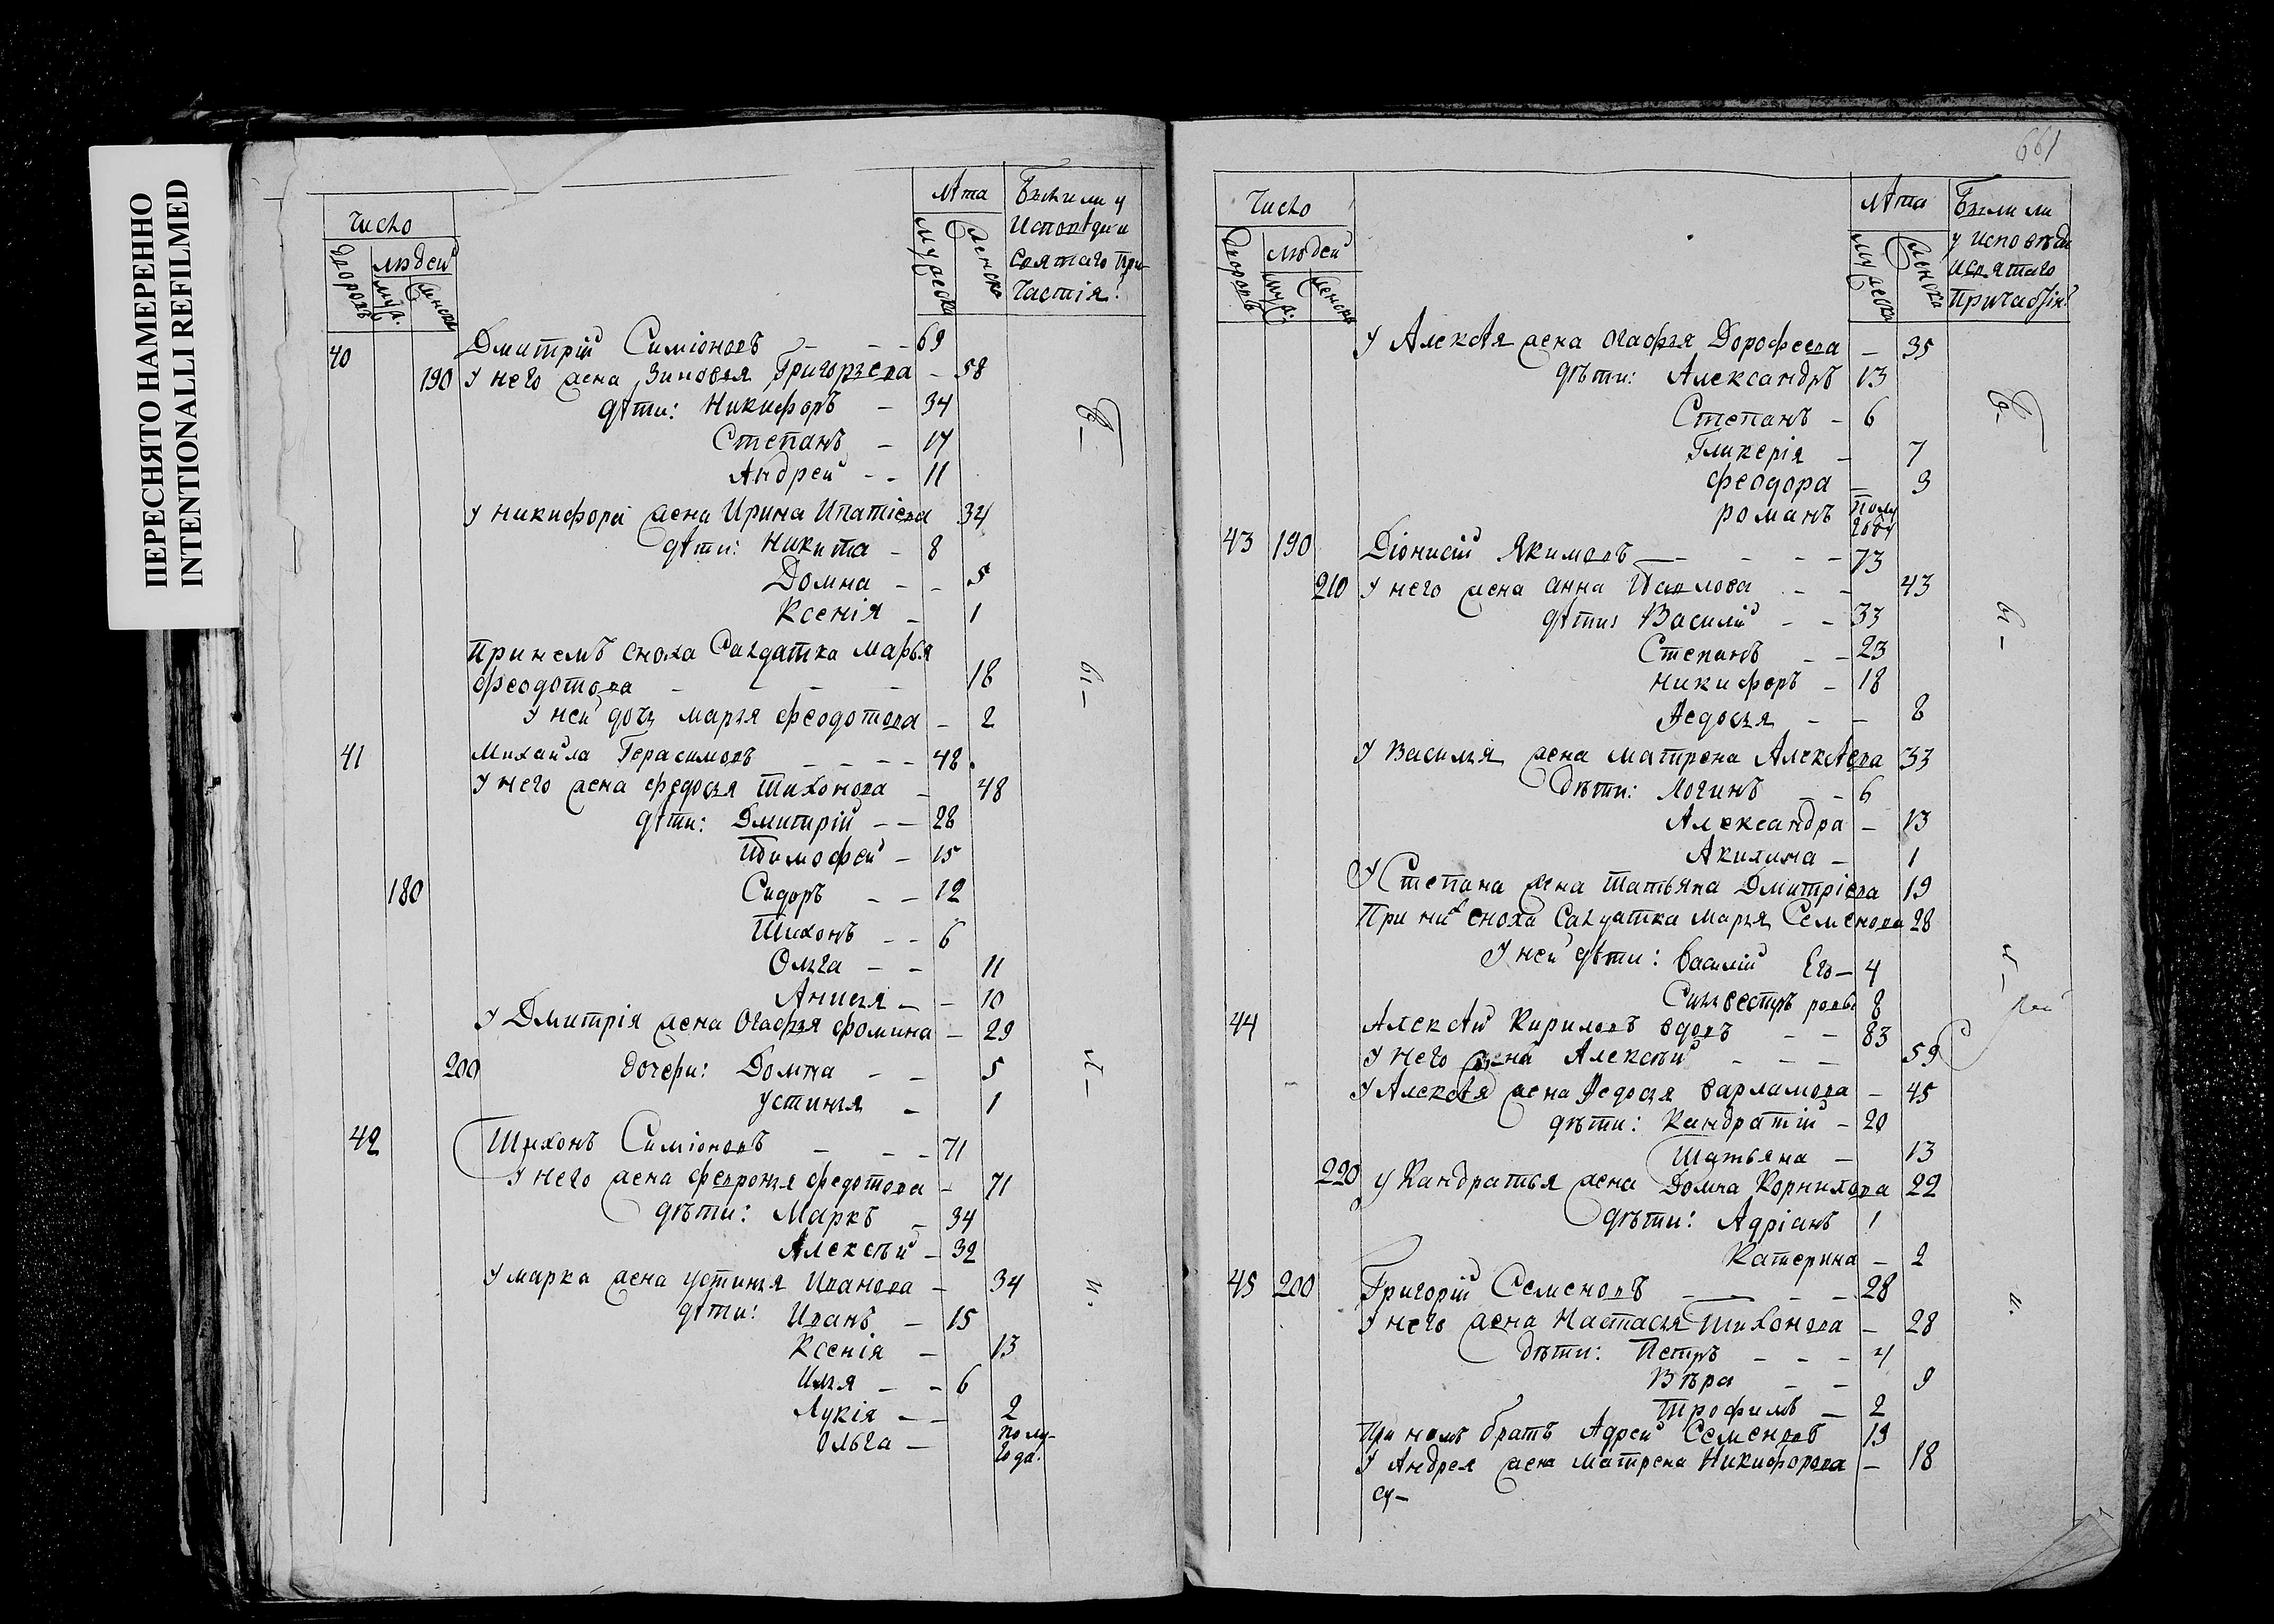 ПЕРЕСНЯТО НАМЕРЕННО
INTENTIONALLI REFILMED
Число
дворовъ
людей
муж.
женска
Лѣта
мужеска
женска
Были ли у
Исповѣди и
Святаго При-
частія?
40 Дмитрій Симіоновъ - - - 69
190 У него жена Зиновья Григорьева - 58
дѣти: Никифоръ - 34
Степанъ - 17
Андрей - - 11
У никифора жена Ирина Ипатіева 34
дѣти: Никита - 8
Домна - - 5
Ксенія - 1
При немъ сноха Салдатка марья
Феодотова - - - - 18
У ней дочь марья Феодотова - 2
41 Михайла Герасимовъ - - - - 48
У него жена Федосья Тихонова - 48
дѣти: Дмитрій - - 28
Тимофей - 15
180 Сидоръ - - 12
Тихонъ - - 6
Ольга - - 11
Анисья - - 10
У Дмитрія жена Огафья Фомина - 29
200 дочери: Домна - - 5
Устинья - 1
42 Тихонъ Симіоновъ - - - 71
У него жена Февронья Федотова - 71
дѣти: Маркъ - 34
Алексѣй - 32
У марка жена Устинья Иванова - 34
дѣти: Иванъ - 15
Ксенія - 13
Илья - - 6
Лукія - - 2
Ольга - полу-
года.
661
Число
дворовъ
людей
муж:
женска
Лѣта
мужеска
женска
Были ли
у исповѣди
и святаго
Причастія?
У Алексѣя жена Огафья Дорофеева - 35
дѣти: Александръ 13
Степанъ - 6
Гликерія - 7
Феодора - 3
романъ полу
году
43 190 Діонисій Якимовъ - - - - 73
210 У него жена анна Павлова - - 43
дѣти: Василій - - 33
Степанъ - - 23
никифоръ - 18
Ѳедосья - - 8
У Василья жена матрена Алексѣева 33
дѣти: Логинъ - - 6
Александра - 13
Акилина - 1
У Степана жена Татьяна Дмитріева 19
При них сноха Салдатка марья Семенова 28
У ней дѣти: Василій Его - 4
Сильвестръ 8
44 Алексѣй Кириловъ вдовъ - - 83
У него Алексѣй - - - 59
У Алексѣя жена Ѳедосья Варламова - 45
дѣти: Кандратій - 20
Татьяна - 13
220 У Кандратья жена Домна Корнилова 22
дѣти: Адріанъ 1
Катерина - 2
45 200 Григорій Семеновъ - - - - 28
У него жена Настасья Тихонова - 28
дѣти: Петръ - - - 4
Вѣра - - 9
Трофимъ - 2
При немъ братъ Адрей Семеновъ 19
У Андрея жена Матрена Никифорова - 18